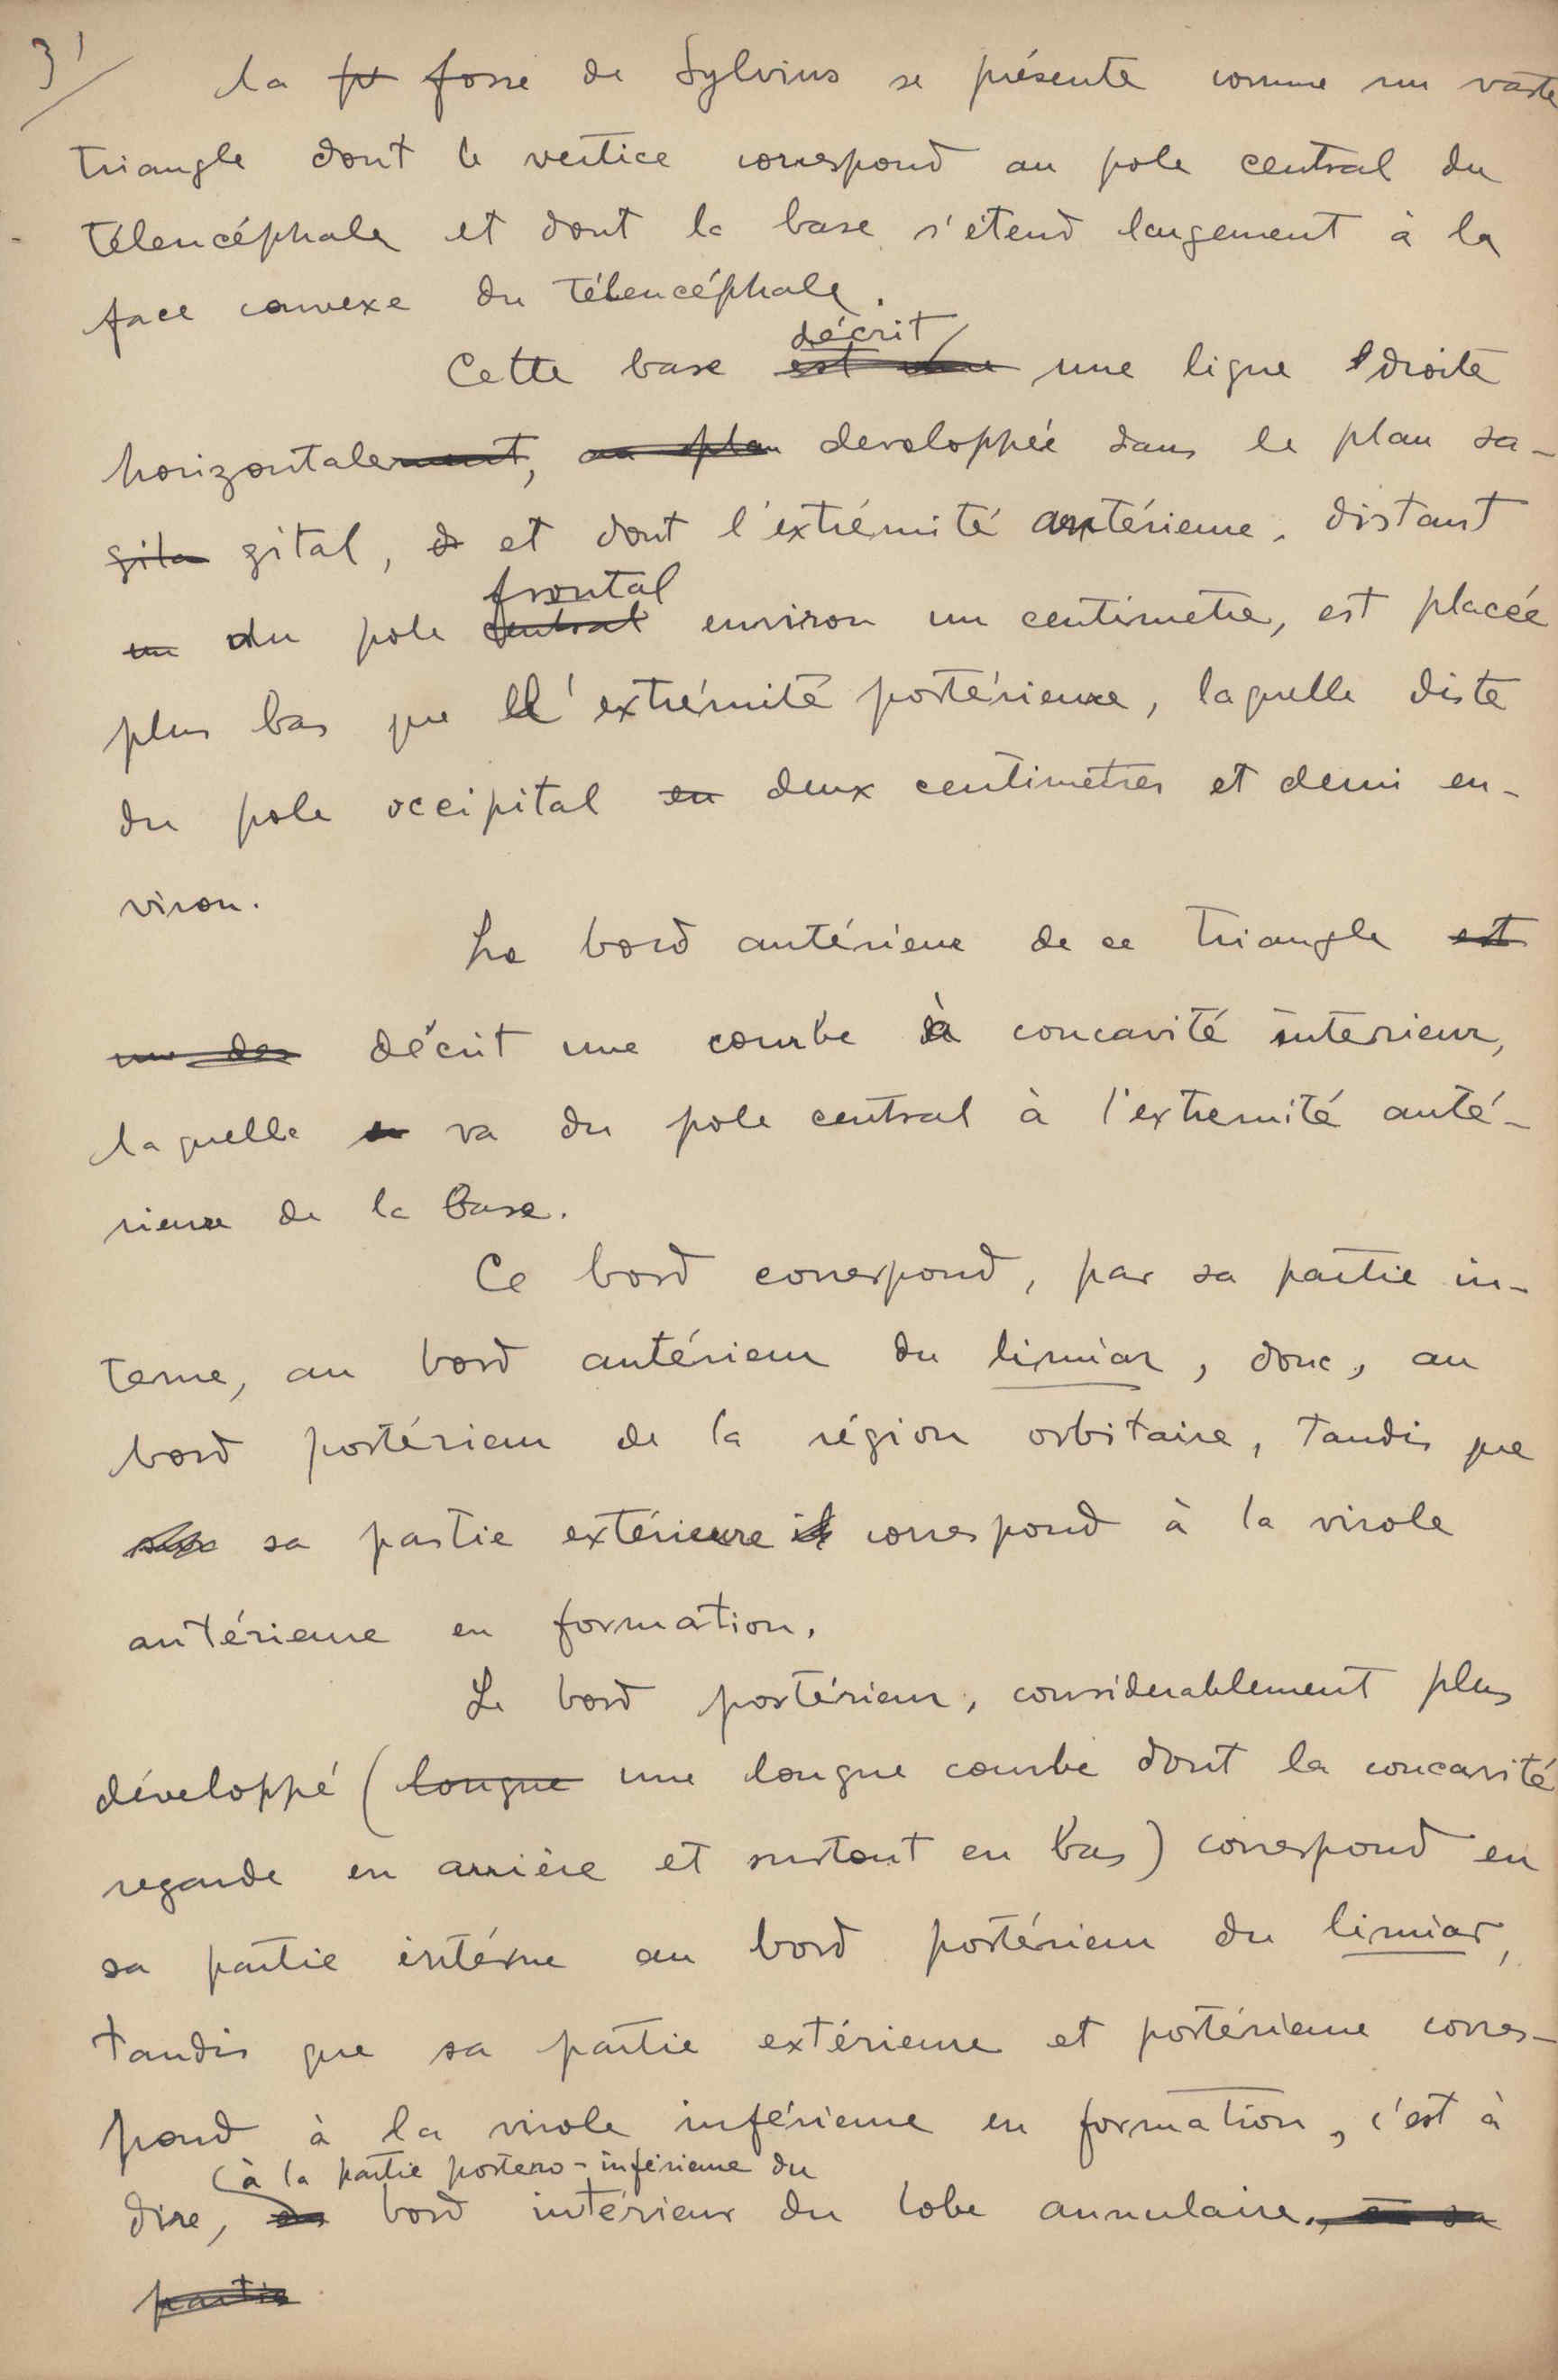 3'/
La fosse de Sylvius se présente comme un vaste
triangle dont le vertice correspond au pole central du
télencéphale et dont la base s'étend largement à la
face convexe du télencéphale.
décrit
Cette base est une une ligne droite
horizontalement, au plan developpée dans le plan sa-
gita gital, et dont l'extrémité antérieure, distant
frontal
un du pole central environ un centimetre, est placée
plus bas que l'extrémité postérieure, laquelle diste
du pole occipital en deux centimetres et demi en-
viron.
Le bord antérieur de ce triangle est
un des décrit une courbe à concavité interieur,
laquelle va du pole central à l'extremité anté-
rieure de la base.
Ce bord correspond, par sa partie in-
terne, au bord antérieur du limiar, donc, au
bord postérieur de la région orbitaire, tandis que
sa partie extérieure il correspond à la virole
antérieure en formation.
Le bord postérieur, considerablement plus
développé (longue une longue courbe dont la concavité
regarde en arrière et surtout en bas) correspond en
sa partie intérne au bord postérieur du limiar,
tandis que sa partie extérieure et postérieure corres-
pond à la virole inférieure en formation, c'est à
(à la partie postero-inférieure du
dire, bord intérieur du lobe annulaire., en sa
partie